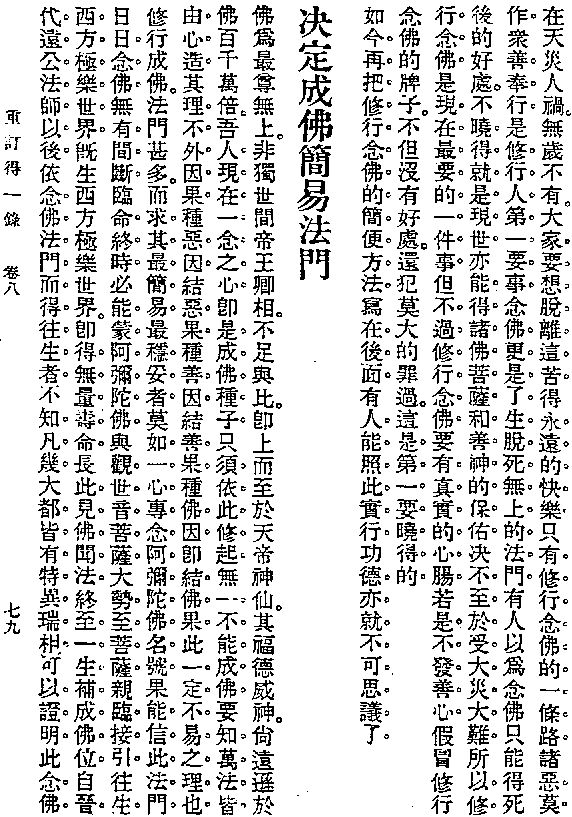 在天災人禍。無歲不有。大家要想脫離這苦得永遠的快樂只有修行念佛的一條路諸惡莫
作衆善奉行是修行人第一要事念佛更是了生脫死無上的法門有人以爲念佛只能得死
後的好處。不曉得就是現世亦能得諸佛菩薩和善神的保佑決不至於受大災大難所以修
行念佛是現在最要的一件事但不過修行念佛要有真實的心腸若是不發善心假冒修行
念佛的牌子。不但沒有好處。還犯莫大的罪過。這是第一要曉得的
如今再把修行念佛的簡便方法寫在後面有人能照此實行功德亦就不可思議了
決定成佛簡易法門
佛爲最尊無上。非獨世間帝王卿相。不足與比。卽上而至於天帝神仙。其福德威神。尙遠遜於
佛百千萬倍。吾人現在一念之心。卽是成佛種子。只須依此修起。無一不能成佛。要知萬法皆
由心造。其理不外因果。種惡因結惡果。種善因結善果。種佛因卽結佛果。此一定不易之理也。
修行成佛。法門甚多。而求其最簡易最穩妥者。莫如一心專念阿彌陀佛名號。果能信此法門。
日日念佛。無有間斷。臨命終時。必能蒙阿彌陀佛。與觀世音菩薩大勢至菩薩。親臨接引。往生
西方極樂世界。旣生西方極樂世界。卽得無量壽命。長此見佛聞法。終至一生補成佛位。自晉
代遠公法師以後。依念佛法門而得往生者。不知凡幾。大都皆有特異瑞相。可以證明此念佛
重訂得一錄 卷八 七九